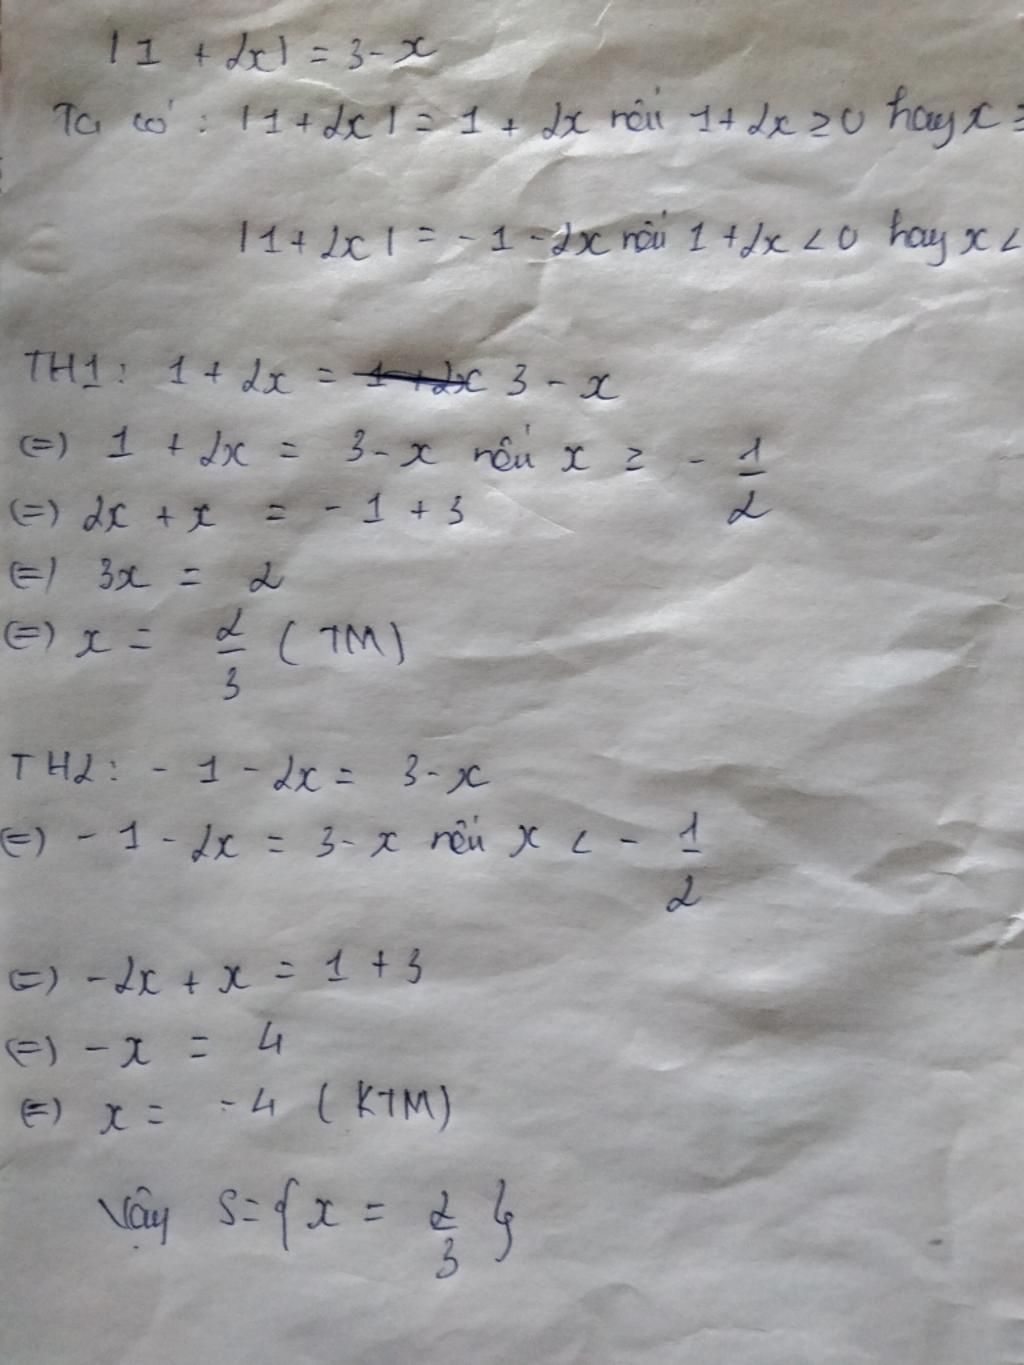 |1 + 2x| = 3 - x
Ta có : |1 + 2x| = 1 + 2x nếu 1 + 2x ≥ 0 hay x ≥
|1 + 2x| = - 1 - 2x nếu 1 + 2x < 0 hay x <
TH1 : 1 + 2x = 1 + 2x 3 - x
(=) 1 + 2x = 3 - x nếu x ≥ - 1/2
(=) 2x + x = - 1 + 3
(=) 3x = 2
(=) x = 2/3 ( TM )
TH2 : - 1 - 2x = 3 - x
(=) - 1 - 2x = 3 - x nếu x < - 1/2
(=) - 2x + x = 1 + 3
(=) - x = 4
(=) x = - 4 ( KTM )
Vậy S = { x = 2/3 }